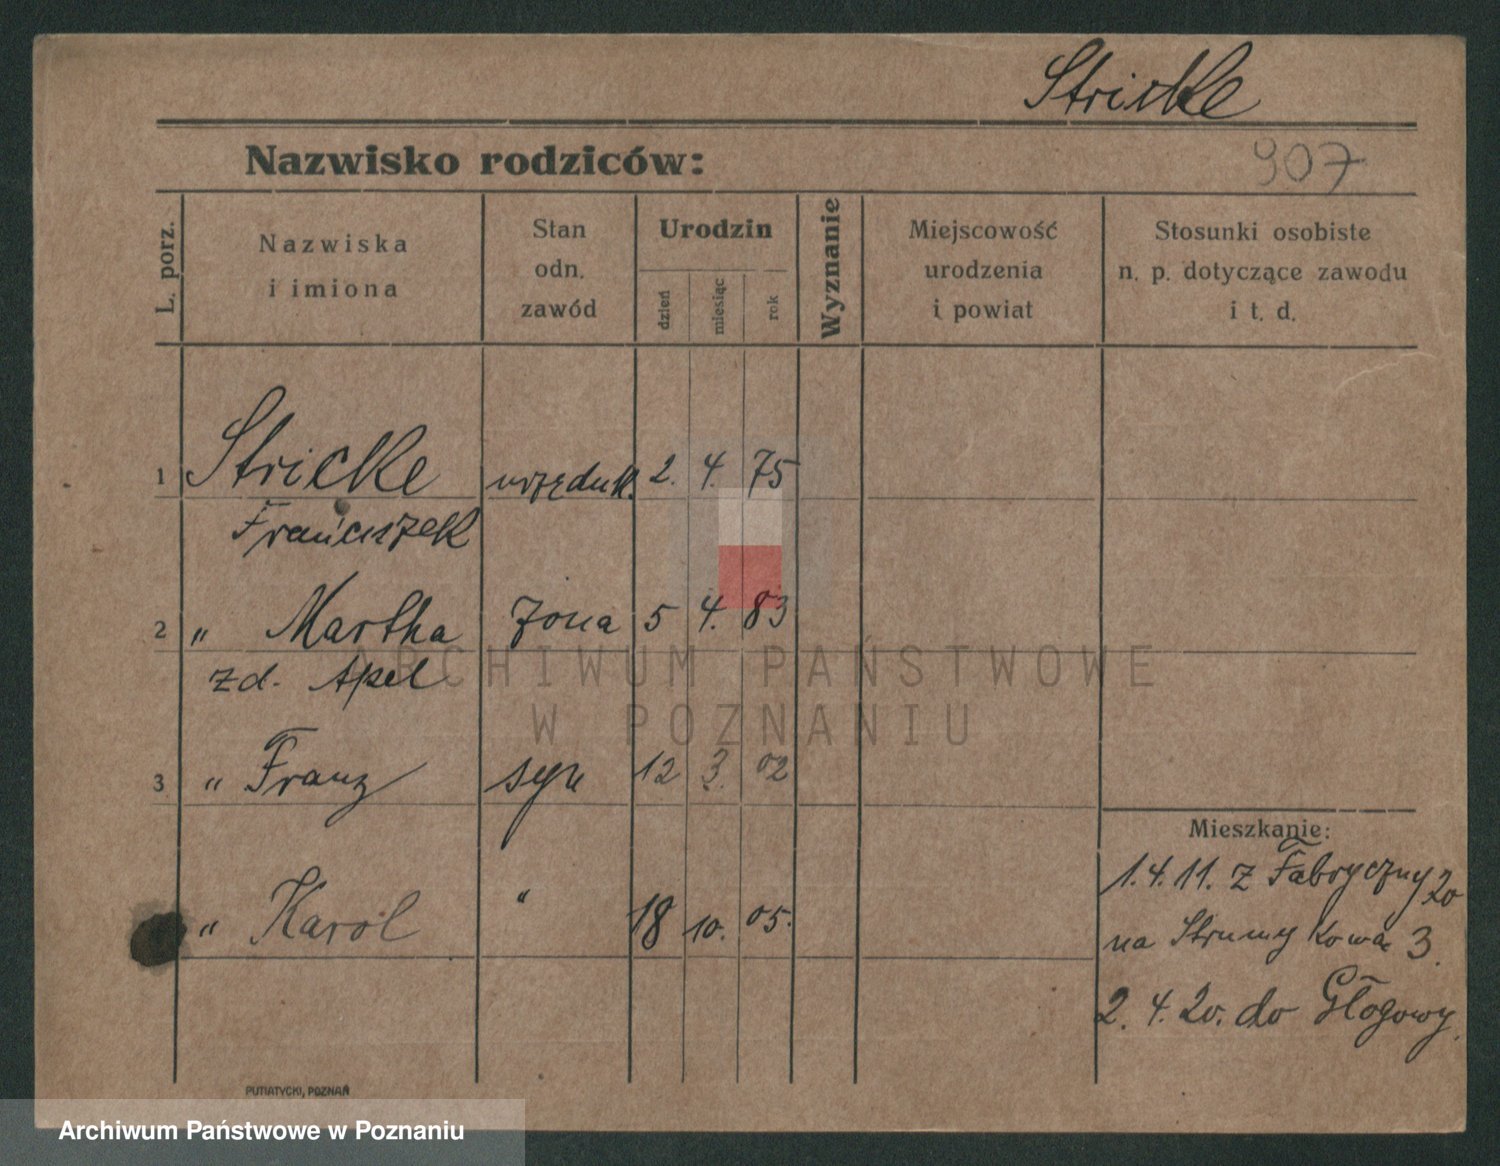 Stricke
Nazwisko rodziców:
907
L. porz.
Nazwiska
i imiona
Stan
odn.
zawód
Urodzin
dzień
miesiąc
rok
Wyznanie
Miejscowość
urodzenia
i powiat
Stosunki osobiste
n. p. dotyczące zawodu
i t. d.
1 Stricke urzędnk. 2. 4. 75
Franciszek
2 " Martha żona 5 4. 83
zd. Apel
ARCHIWUM PAŃSTWOWE
W POZNANIU
3 " Franz syn 12 3. 02
" Karol " 18 10. 05.
Mieszkanie:
1.4.11. z Fabryczny 20
na Strumykowa 3.
2. 4. 20. do Głogowy.
PUTIATYCKI, POZNAŃ
Archiwum Państwowe w Poznaniu